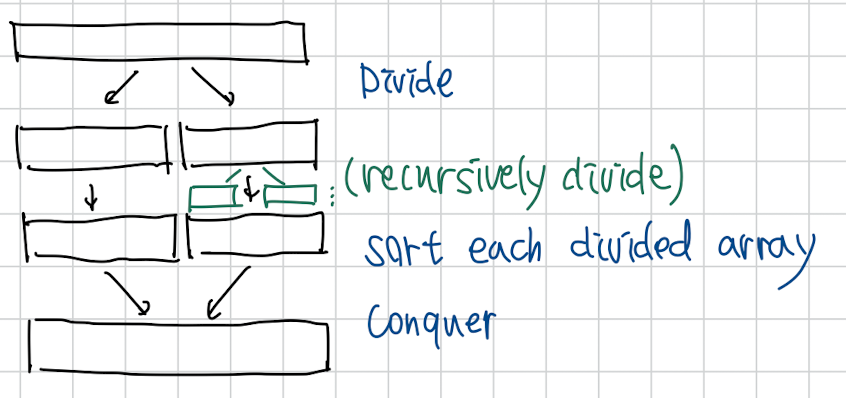 Divide
(recursively divide)
sort each divided array
Conquer